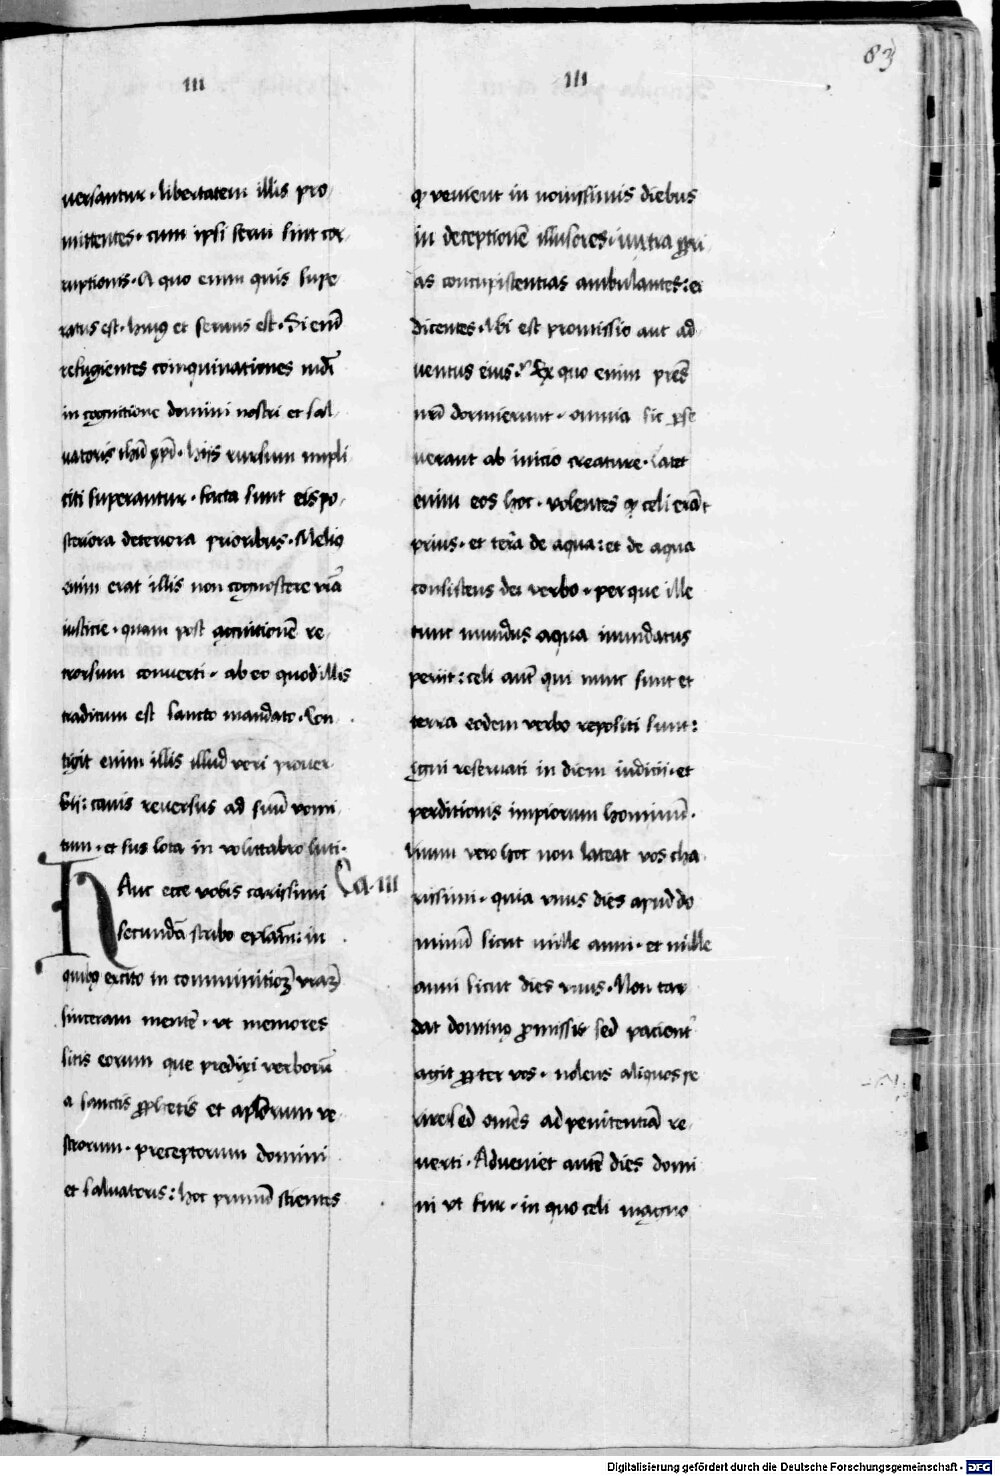 83
III
III
versantur · libertatem illis pro-
mittentes · cum ipsi servi sint cor-
ruptionis · A quo enim quis supe-
ratus est · huiꝰ et servus est · Si enī
refugientes coinquinationes mūdi
in cognitione domini nostri et sal-
vatoris ihū xp̄i · hijs rursum impli
citi superantur · facta sunt eis po-
steriora deteriora prioribus · Meliꝰ
enim erat illis non cognoscere viā
iusticie · quam post agnitionē re-
trorsum converti · ab eo quod illis
traditum est sancto mandato · Con
tigit enim illis illud veri prover-
bij : canis reversus ad suū vomi
tum · et sus lota in volutabro luti ·
Ca · III
Hanc ecce vobis carissimi
secundā scribo eplām : in
quibꝰ excito in commonitioꝫ vrām
sinceram mentē · vt memores
sitis eorum que predixi verborū
a sanctis ꝓphetis et aplorum ve-
strorum · preceptorum domini
et salvatoris : hoc primū scientes
qꝫ venient in novissimis diebus
in deceptionē illusores · iuxta ꝓpri
as concupiscentias ambulantes : ei
dicentes · Vbi est promissio aut ad
ventus eius ? Ex quo enim pres̄
nrī dormierunt · omnia sic ꝑse
verant ab inicio creature · Latet
enim eos hoc · volentes qꝫ celi erāt
prius · et terra de aqua : et de aqua
consistens dei verbo · per que ille
tunc mundus aqua inundatus
periit : celi aut̄ qui nunc sunt et
terra eodem verbo repositi sunt :
igni reservati in diem iudicii · et
perditionis impiorum hominū ·
Unum vero hoc non lateat vos cha-
rissimi · quia vnus dies apud do
minū sicut mille anni · et mille
anni sicut dies vnus · Non tar
dat dominꝰ ꝓmissis sed pacient̄
agit ꝓpter vos · nolens aliquos pe
rire sed omēs ad penitentiā re-
verti · Adveniet autē dies domi
ni vt fur · in quo celi magno
Digitalisierung gefördert durch die Deutsche Forschungsgemeinschaft - DFG